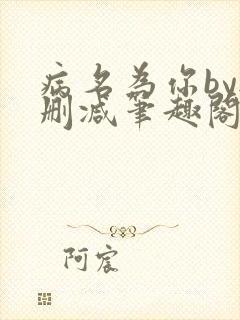 病名为你by
删减笔趣阁
阿宸